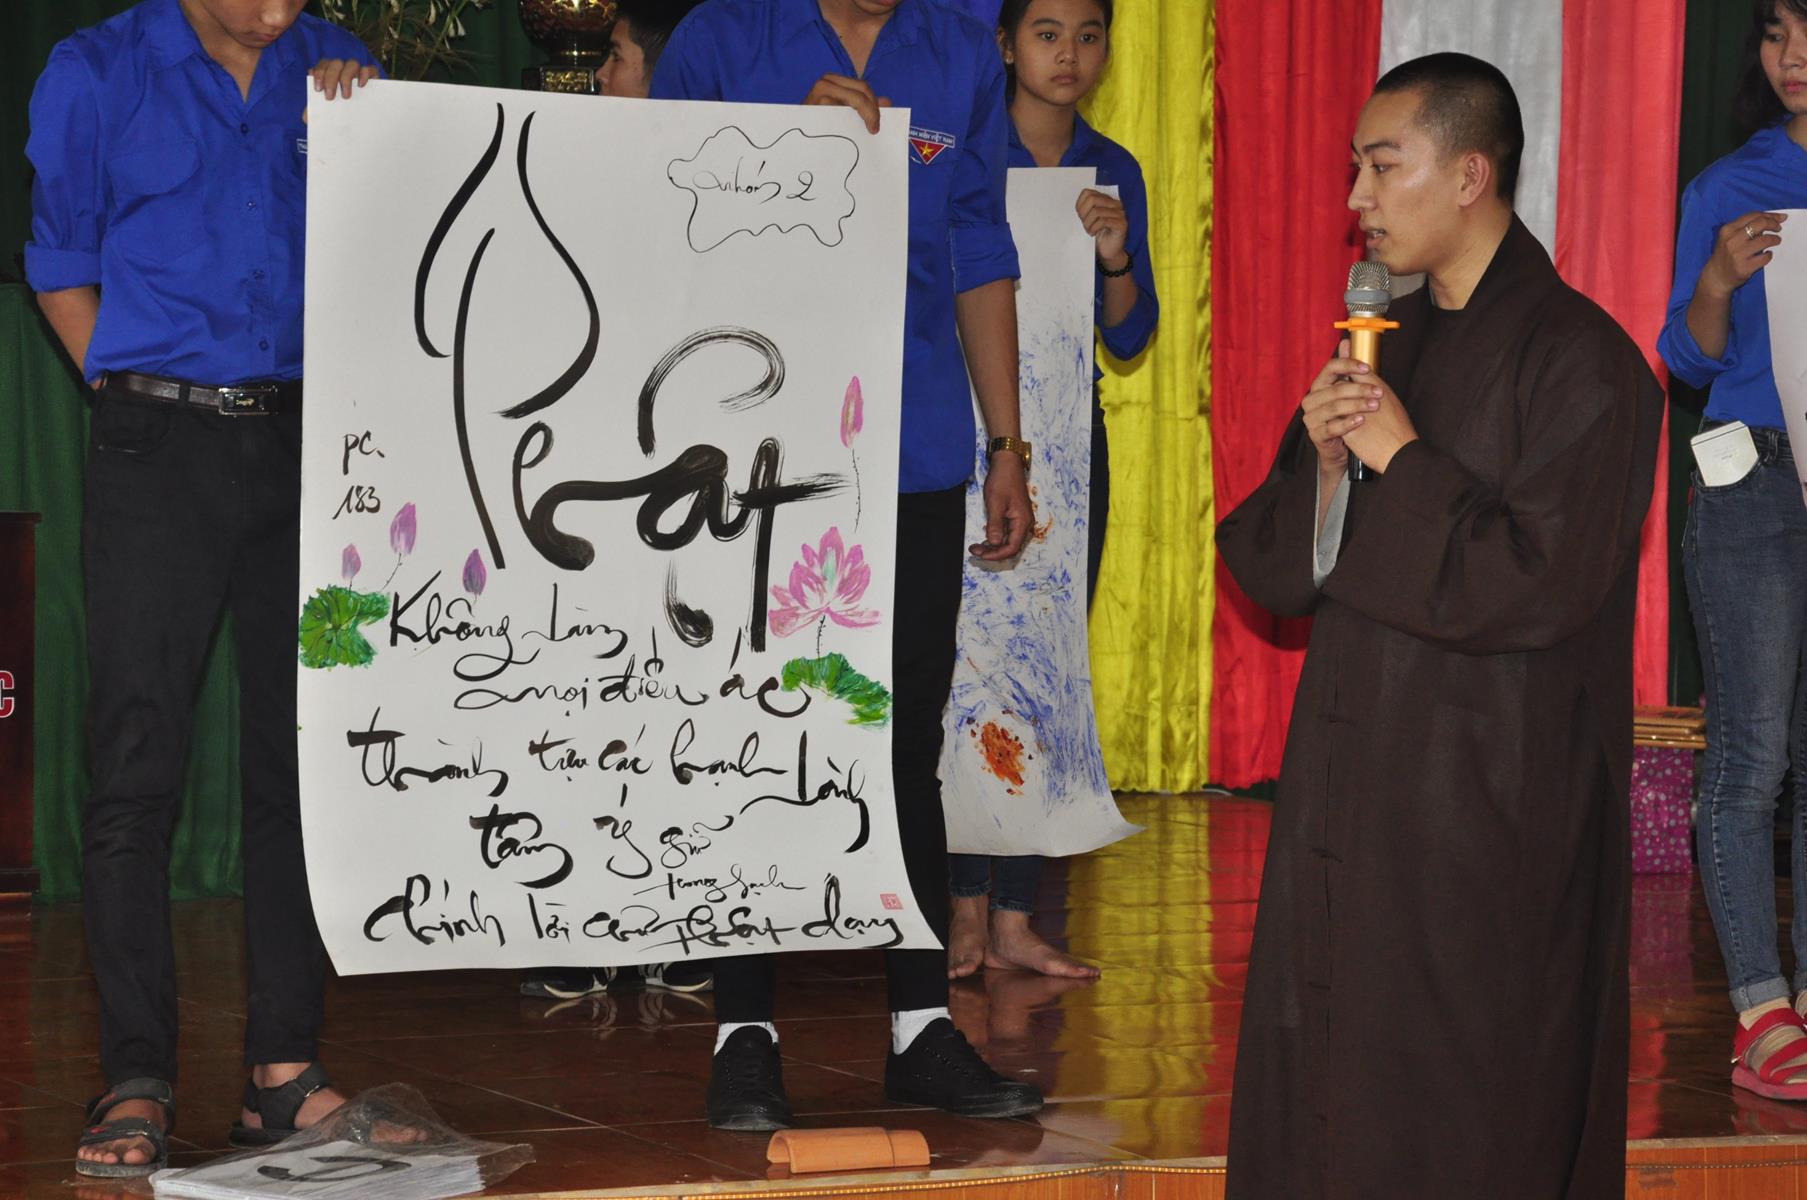 Nhóm 2
Phật
PC.
183
Không làm
mọi điều ác
thành tựu các hạnh lành
tâm ý giữ
trong sạch
chính lời chư Phật dạy
C